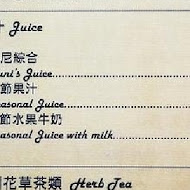 Juice
尼綜合
uni's Juice
節果汁
easonal Juice
節水果牛奶
easonal Juice with milk
花草茶類 Herb Tea